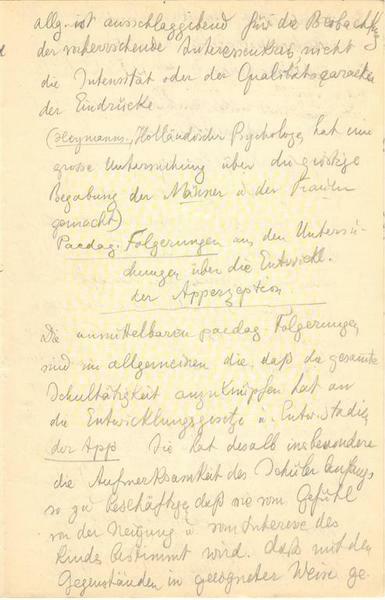 allg. ist ausschlaggebend für die Beobachtg
der vorherrschende Interessenkreis, nicht
die Intensität oder der Qualitätscharakter
der Eindrücke
(Heymanns, Holländischer Psychologe, hat eine
grosse Untersuchung über die geistige
Begabung der Männer u der Frauen
gemacht)
Paedag. Folgerungen aus den Untersu-
chungen über die Entwickl.
der Apperzeption
Die unmittelbaren paedag. Folgerungen
sind im allgemeinen die, daß die gesamte
Schultätigkeit anzuknüpfen hat an
die Entwicklungsgesetze u. Entw. stadien
der App Sie hat desalb insbesondere
die Aufmerksamkeit des Schüler Anfangs
so zu beschäftigen daß sie vom Gefühl
von der Neigung u vom Interesse des
Kindes bestimmt wird. daß mit den
Gegenständen in geeigneter Weise ge